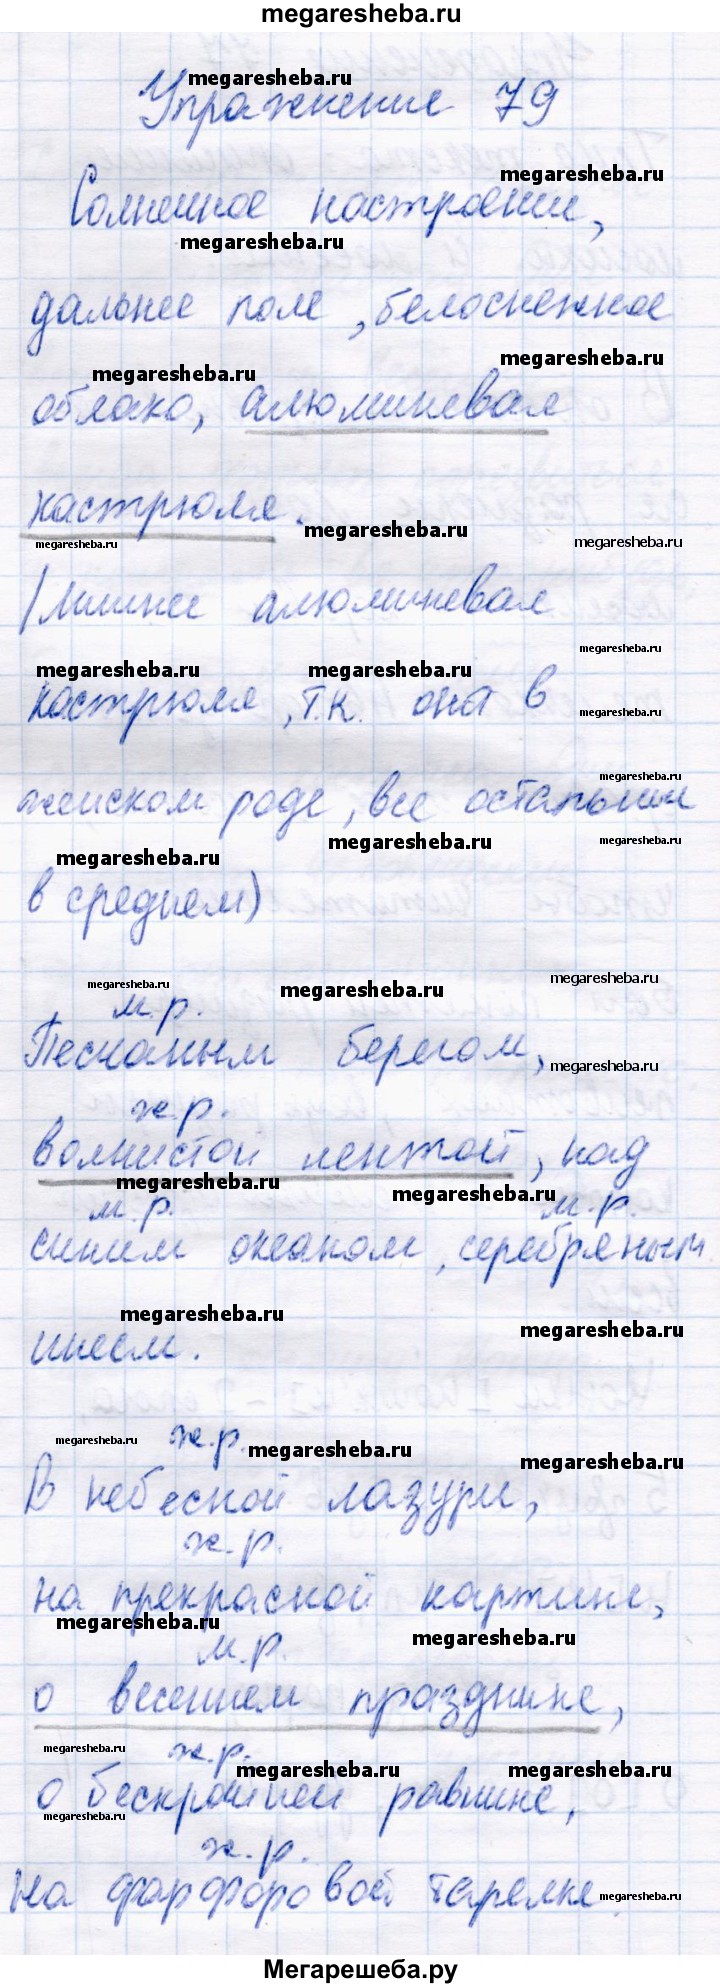 megaresheba.ru
Упражнение 79
Солнечное настроение,
дальнее поле, белоснежное
облако, алюминевая
кастрюля.
(Лишнее алюминевая
кастрюля, т.к. она в
женском роде, все остальные
в среднем)
м.р.
Песчаным берегом,
ж.р.
волнистой лентой, над
м.р. м.р.
синим океаном, серебряным
инеем.
ж.р.
В небесной лазури,
ж.р.
на прекрасной картине,
м.р.
о весеннем празднике,
ж.р.
о бескрайней равнине,
ж.р.
на фарфоровой тарелке.
Мегарешеба.ру